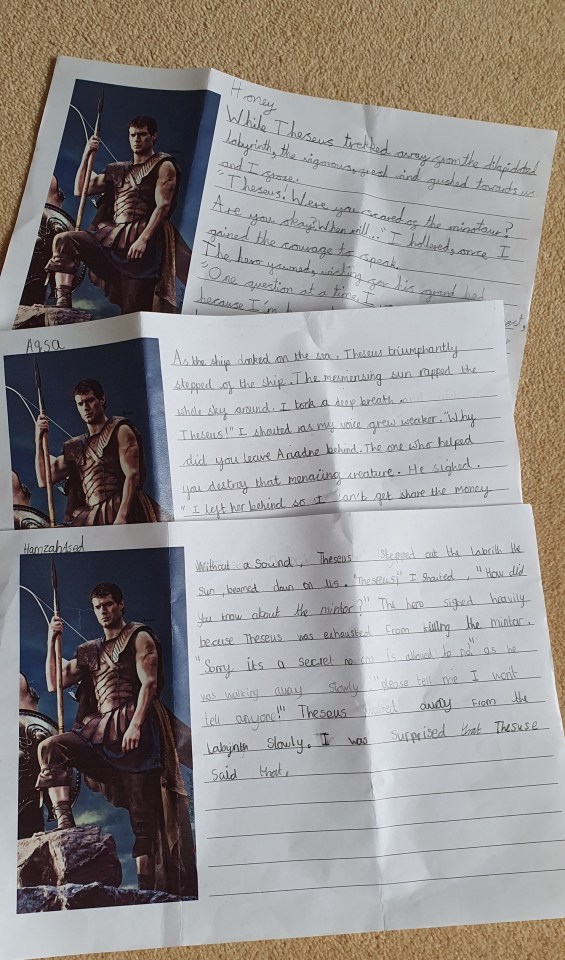 Honey
While Theseus trekked away from the dilapidated
labyrinth, the vigorous, great wind gushed towards us
and I froze.
"Theseus! Were you scared of the minotaur?
Are you okay? When will..." I hollered, once I
gained the courage to speak.
The hero yawned, wishing for his grand bed
"One question at a time, I
because I'm
Aqsa
As the ship docked on the sea. Theseus triumphantly
stepped of the ship. The mesmersing sun rapped the
whole sky around. I took a deep breath.
Theseus!" I shouted as my voice grew weaker. "Why
did you leave Ariadne behind. The one who helped
you destroy that menacing creature. He sighed.
" I left her behind so I can't get share the money
Hamzah
Without a sound, Theseus stepped out the labrith the
sun, beamed down on us. "Theseus!" I shouted, "How did
you know about the mintor?" The hero sighed heavily
becuse Theseus was exhausted from killing the mintor.
"Sorry its a secret no is allowed to no" as he
was walking away slowly "please tell me I won't
tell anyone!" Theseus walked away from the
Labynith slowly. I was surprised that Thesuse
said that.